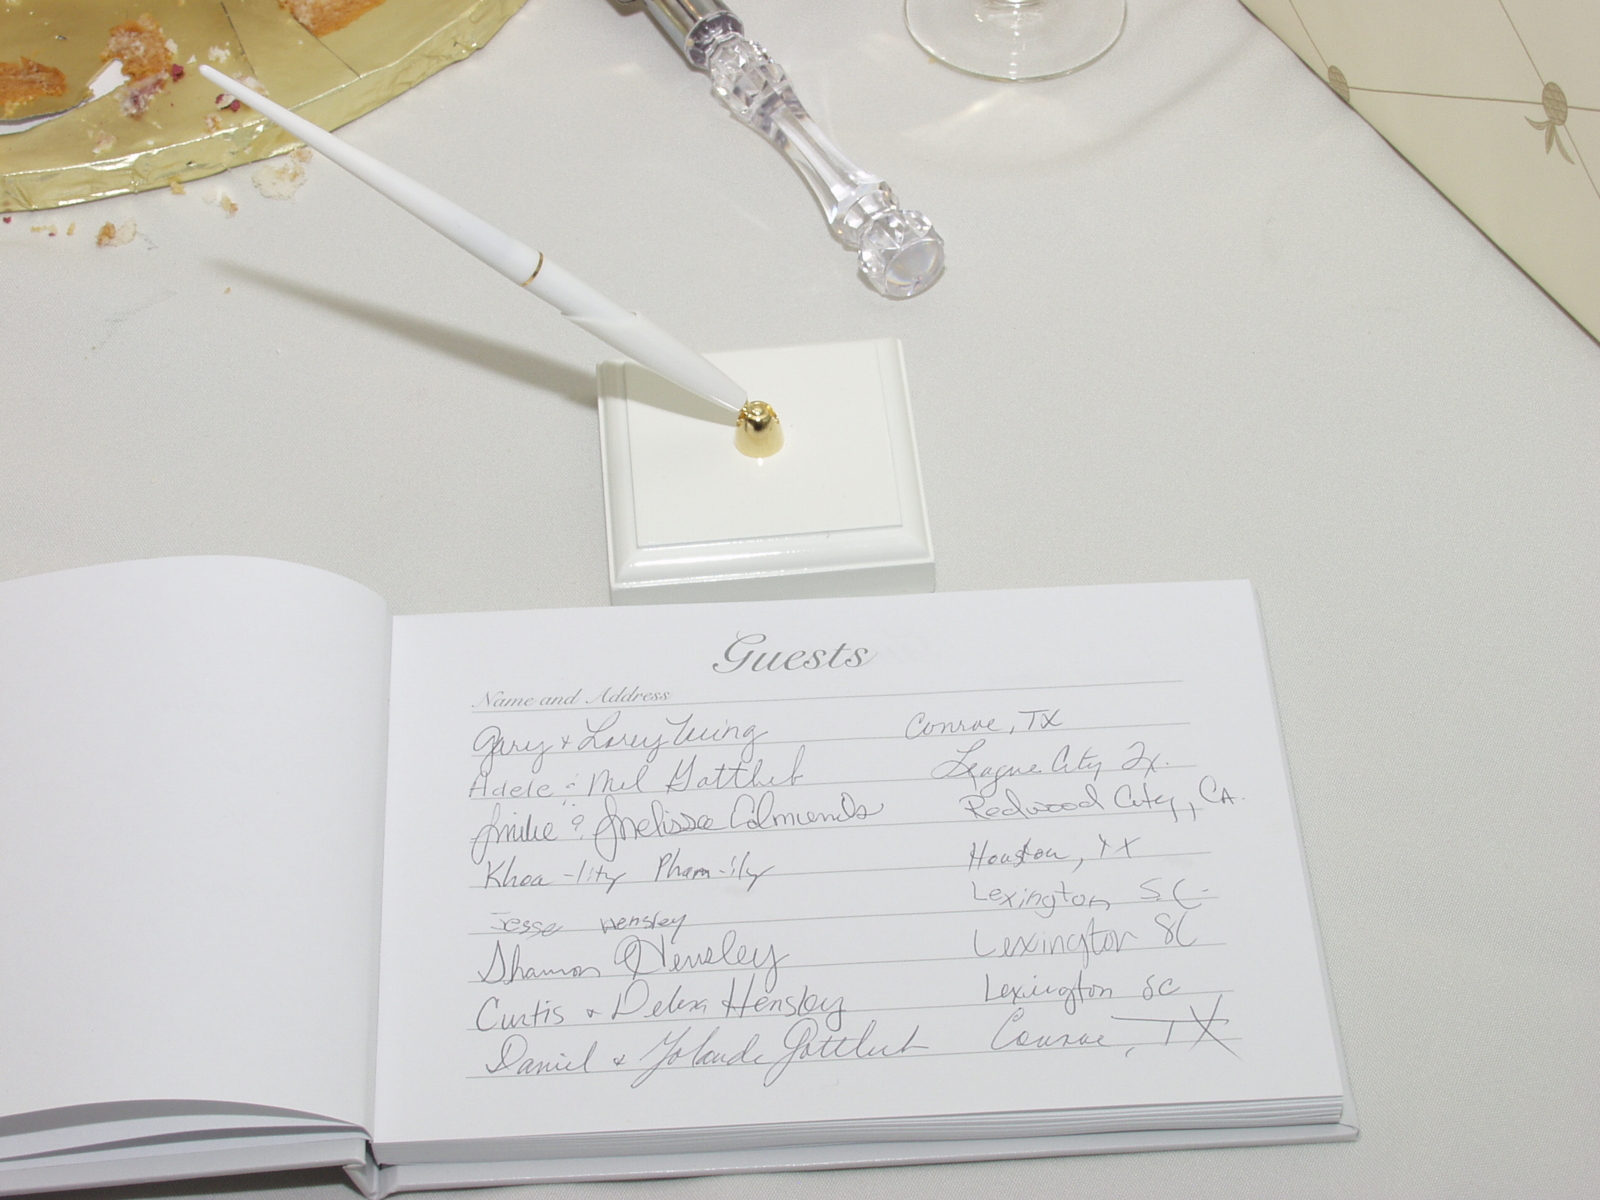 Guests
Name and Address
Gary & Lorey Twing Conroe, TX
Adele & Mel Gottlieb League City Tx.
& Melissa Edmunds Redwood City, CA.
Khoa-lity Pham-ily Houston, TX
Jesse Hensley Lexington SC
Shannon Hensley Lexington SC
Curtis & Debra Hensley Lexington SC
Daniel & Yolande Gottlieb Conroe, TX